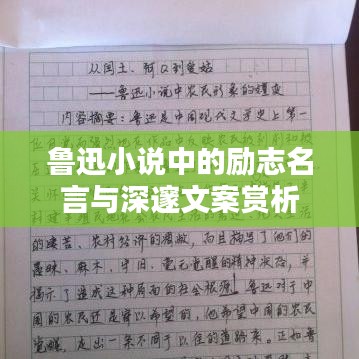 从闰土、阿Q到爱姑
——鲁迅小说中农民形象的嬗变
内容摘要：鲁迅是中国现代文学史上第一
鲁迅小说中的励志名
言与深邃文案赏析
的疾苦、农村经济的凋敝，而且描写了他们的
愚昧、麻木、守旧、毫无觉醒的精神状态，并
揭示了造成这种局面的社会根源。鲁迅对于中
国的农民还是寄以希望的，他希望中国的农民
觉醒，走出一条不同于以往的道路来。正如鲁